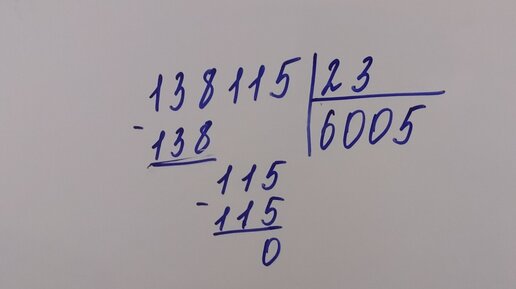 138115 23
- 138 6005
115
- 115
0